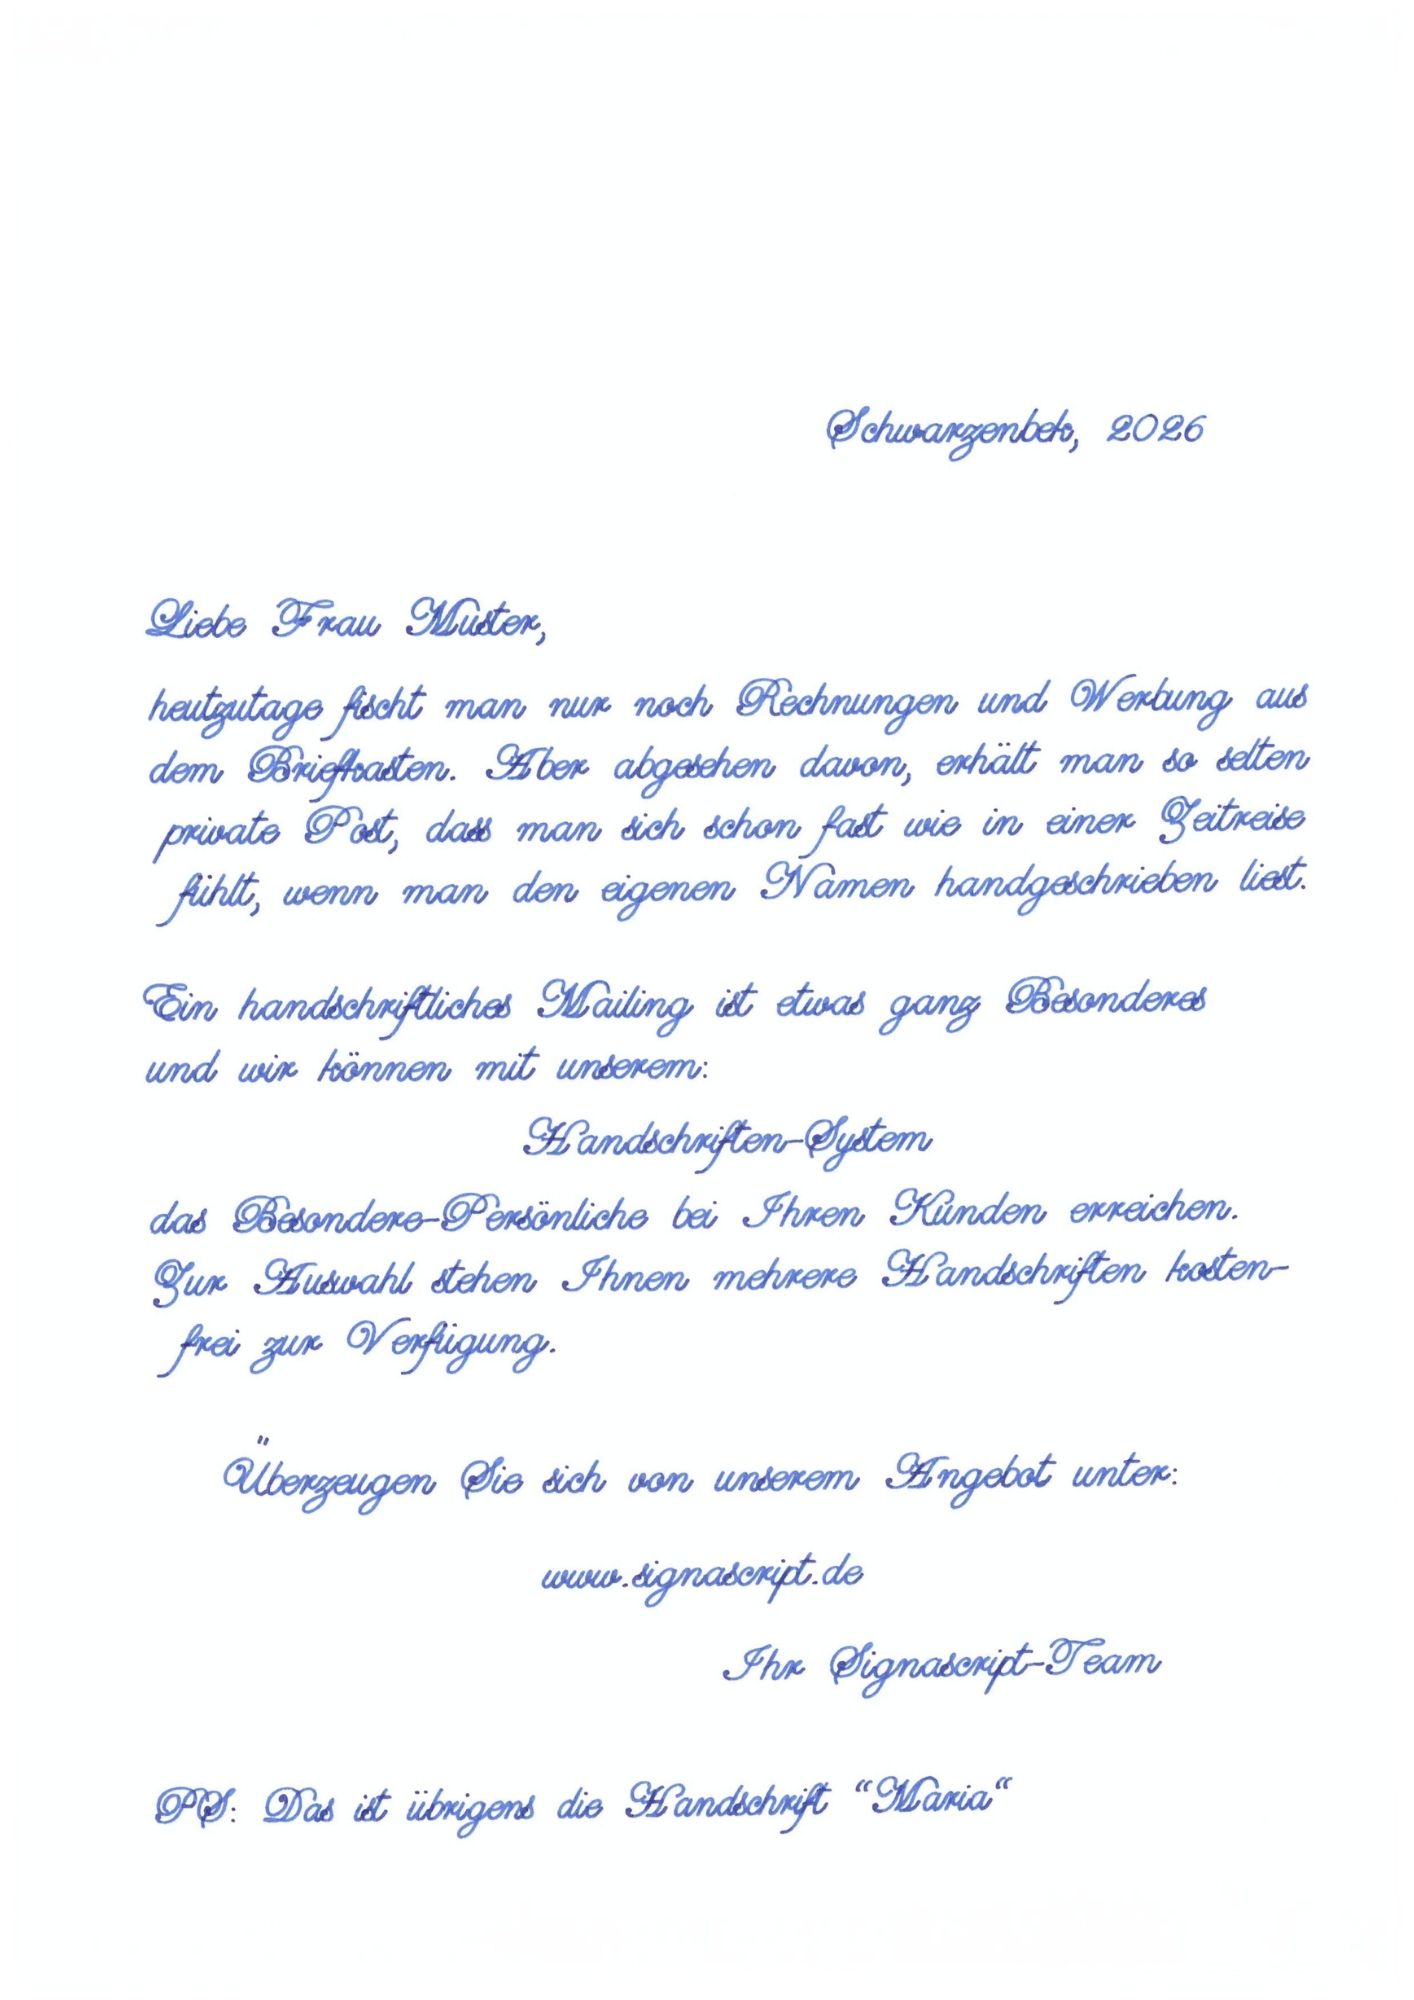 Schwarzenbek, 2026
Liebe Frau Muster,
heutzutage fischt man nur noch Rechnungen und Werbung aus
dem Briefkasten. Aber abgesehen davon, erhält man so selten
private Post, dass man sich schon fast wie in einer Zeitreise
fühlt, wenn man den eigenen Namen handgeschrieben liest.
Ein handschriftliches Mailing ist etwas ganz Besonderes
und wir können mit unserem:
Handschriften-System
das Besondere-Persönliche bei Ihren Kunden erreichen.
Zur Auswahl stehen Ihnen mehrere Handschriften kosten-
frei zur Verfügung.
Überzeugen Sie sich von unserem Angebot unter:
www.signascript.de
Ihr Signascript-Team
PS: Das ist übrigens die Handschrift “Maria“